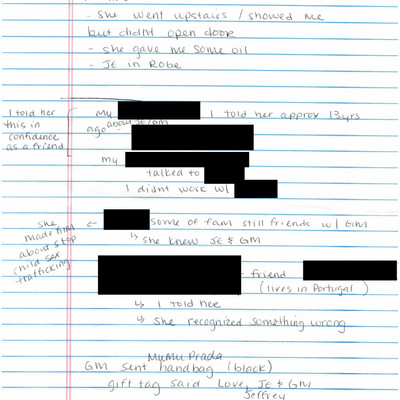 - She went upstairs / showed me
but didnt open door
- she gave me some oil
- JE in Robe
I told her
this in
confidence
as a friend
my I told her approx 13yrs
ago about JE/GM
my
talked to
I didnt work w/
she
made film
about stop
child sex
trafficking
← some of fam still friends w/ GM
↳ she knew JE & GM
- friend
(lives in Portugal)
↳ I told her
↳ She recognized something wrong
MiuMiu Prada
GM sent handbag (black)
gift tag said Love, JE & GM
Jeffrey